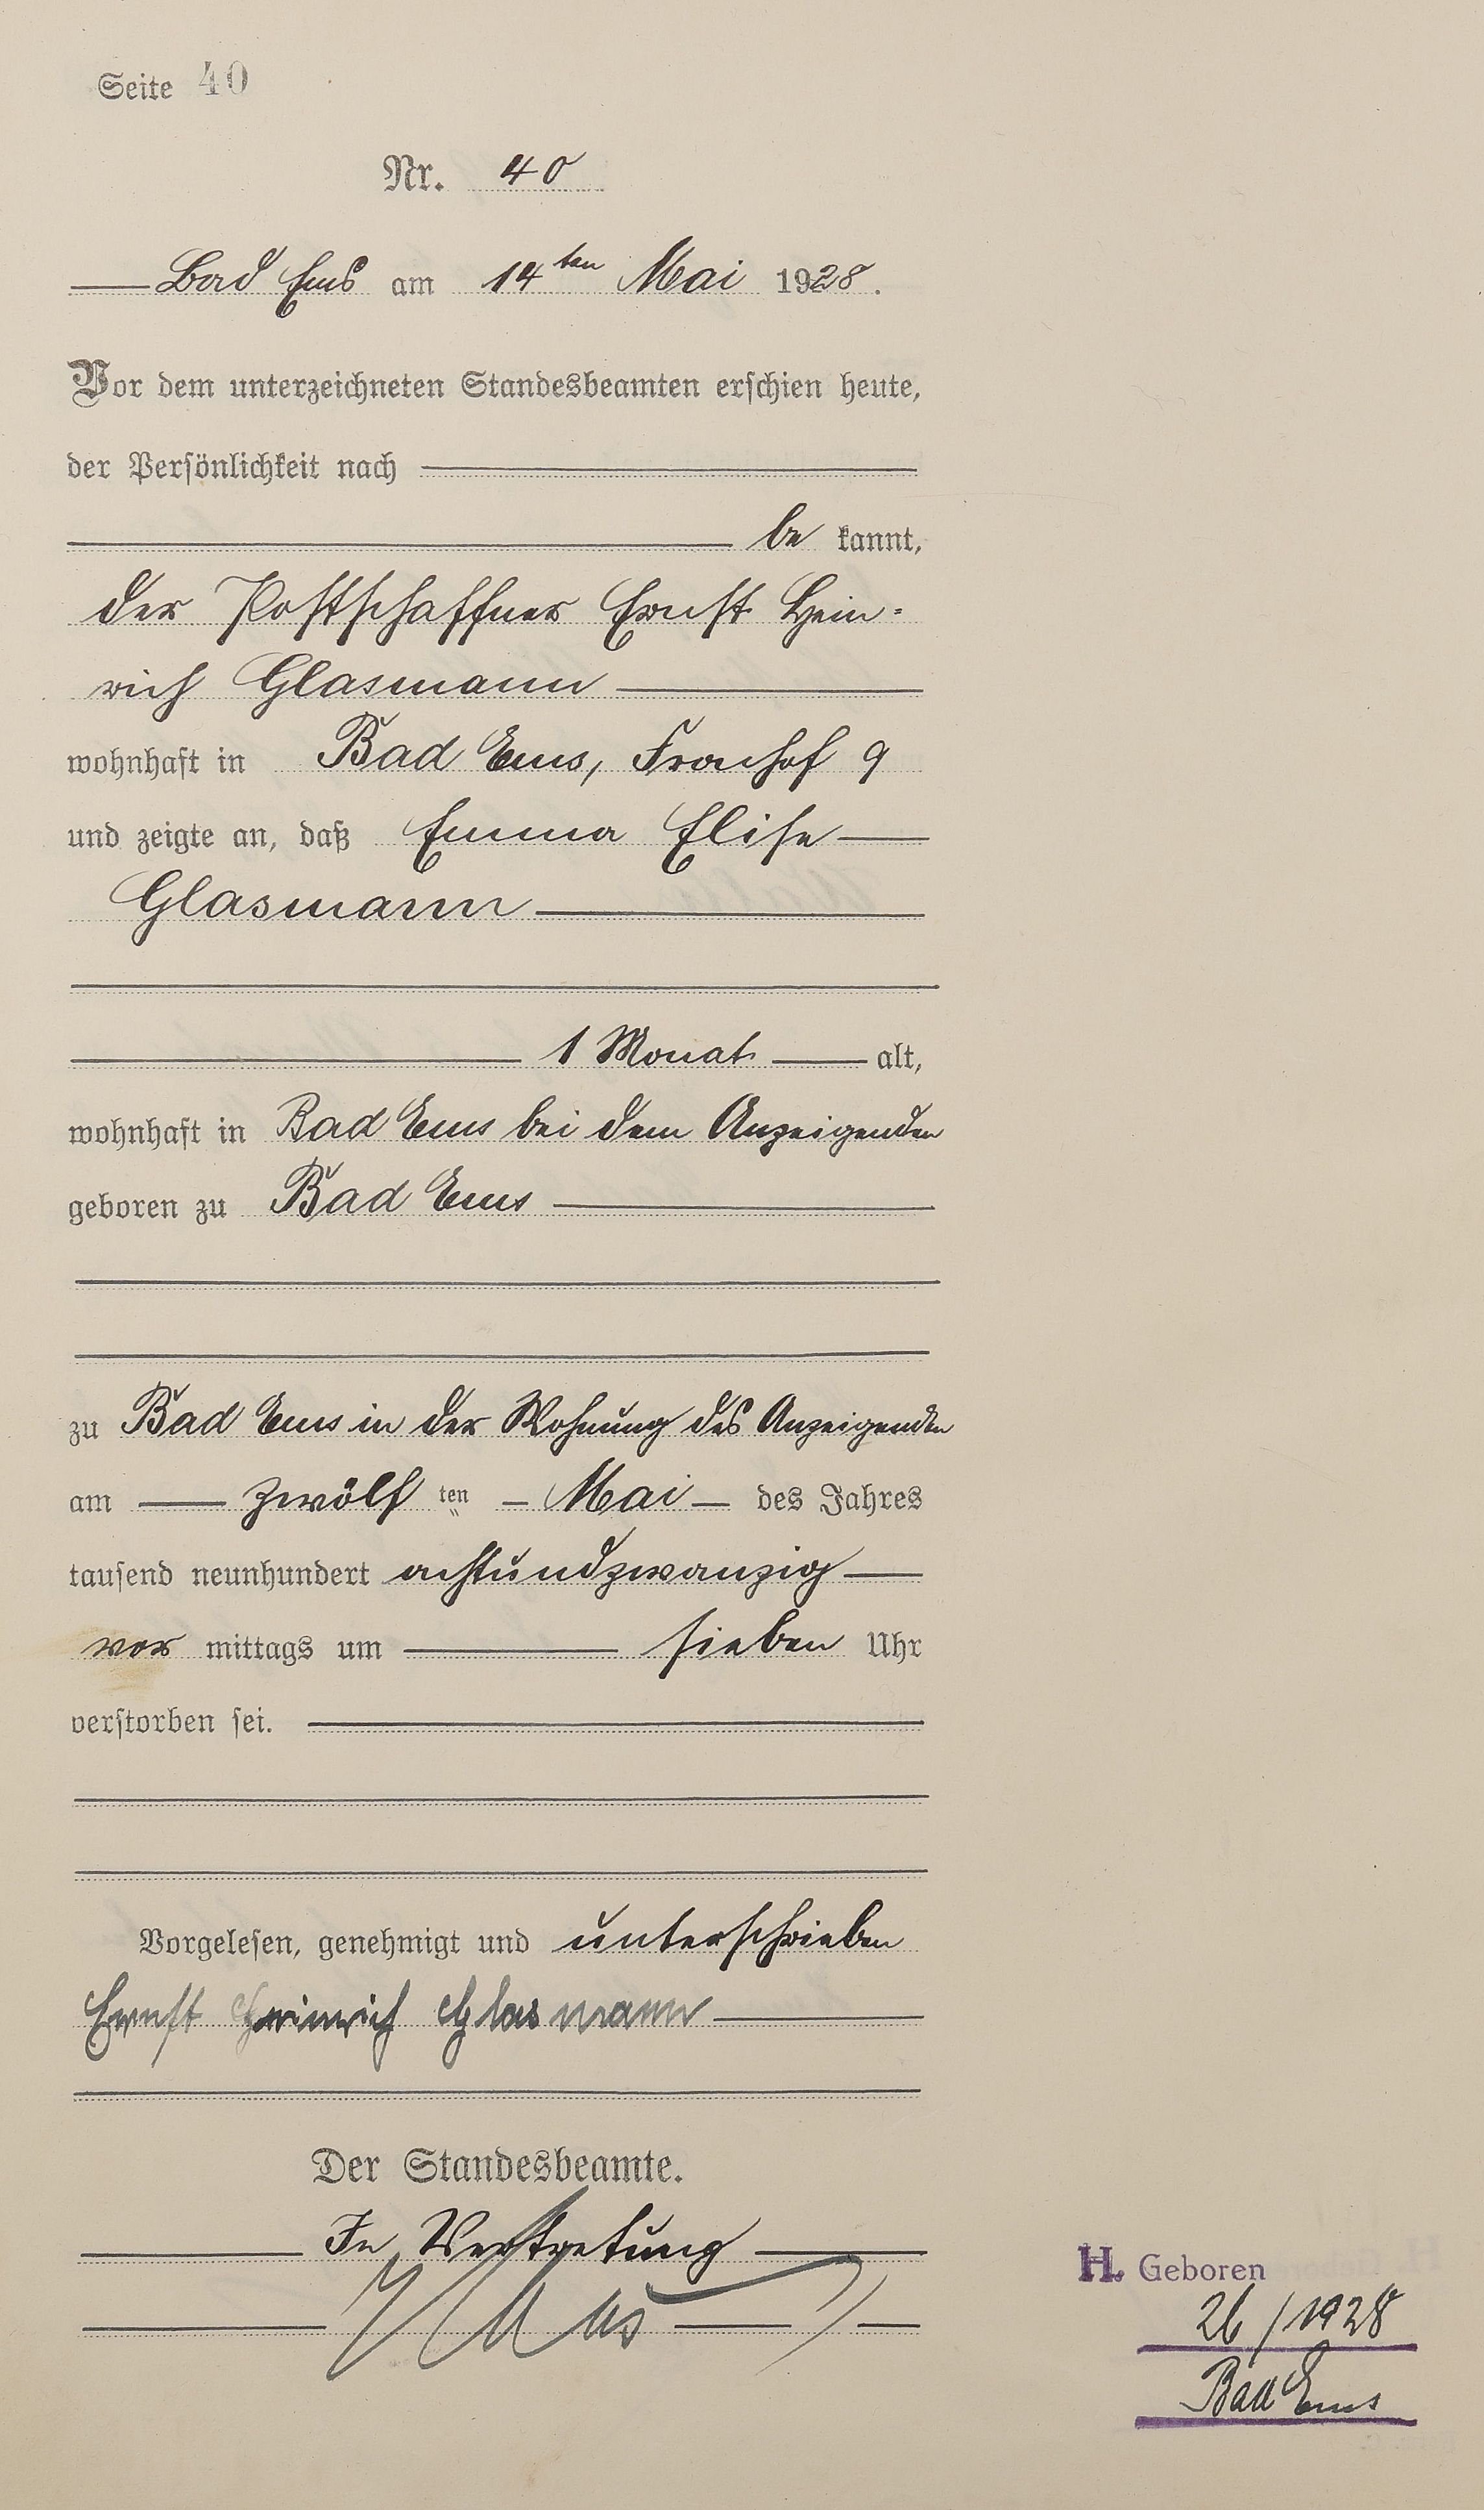 Seite 40
Nr. 40
Bad Ems am 14ten Mai 1928.
Vor dem unterzeichneten Standesbeamten erschien heute,
der Persönlichkeit nach
be kannt,
der Postschaffner Ernst Hein-
rich Glasmann
wohnhaft in Bad Ems, Fronhof 9
und zeigte an, daß Emma Elise
Glasmann
1 Monat alt,
wohnhaft in Bad Ems bei dem Anzeigenden
geboren zu Bad Ems
zu Bad Ems in der Wohnung des Anzeigenden
am zwölf ten Mai des Jahres
tausend neunhundert achtundzwanzig
vor mittags um sieben Uhr
verstorben sei.
Vorgelesen, genehmigt und unterschrieben
Ernst Heinrich Glasmann
Der Standesbeamte.
In Vertretung
H. Geboren
26/1928
Bad Ems